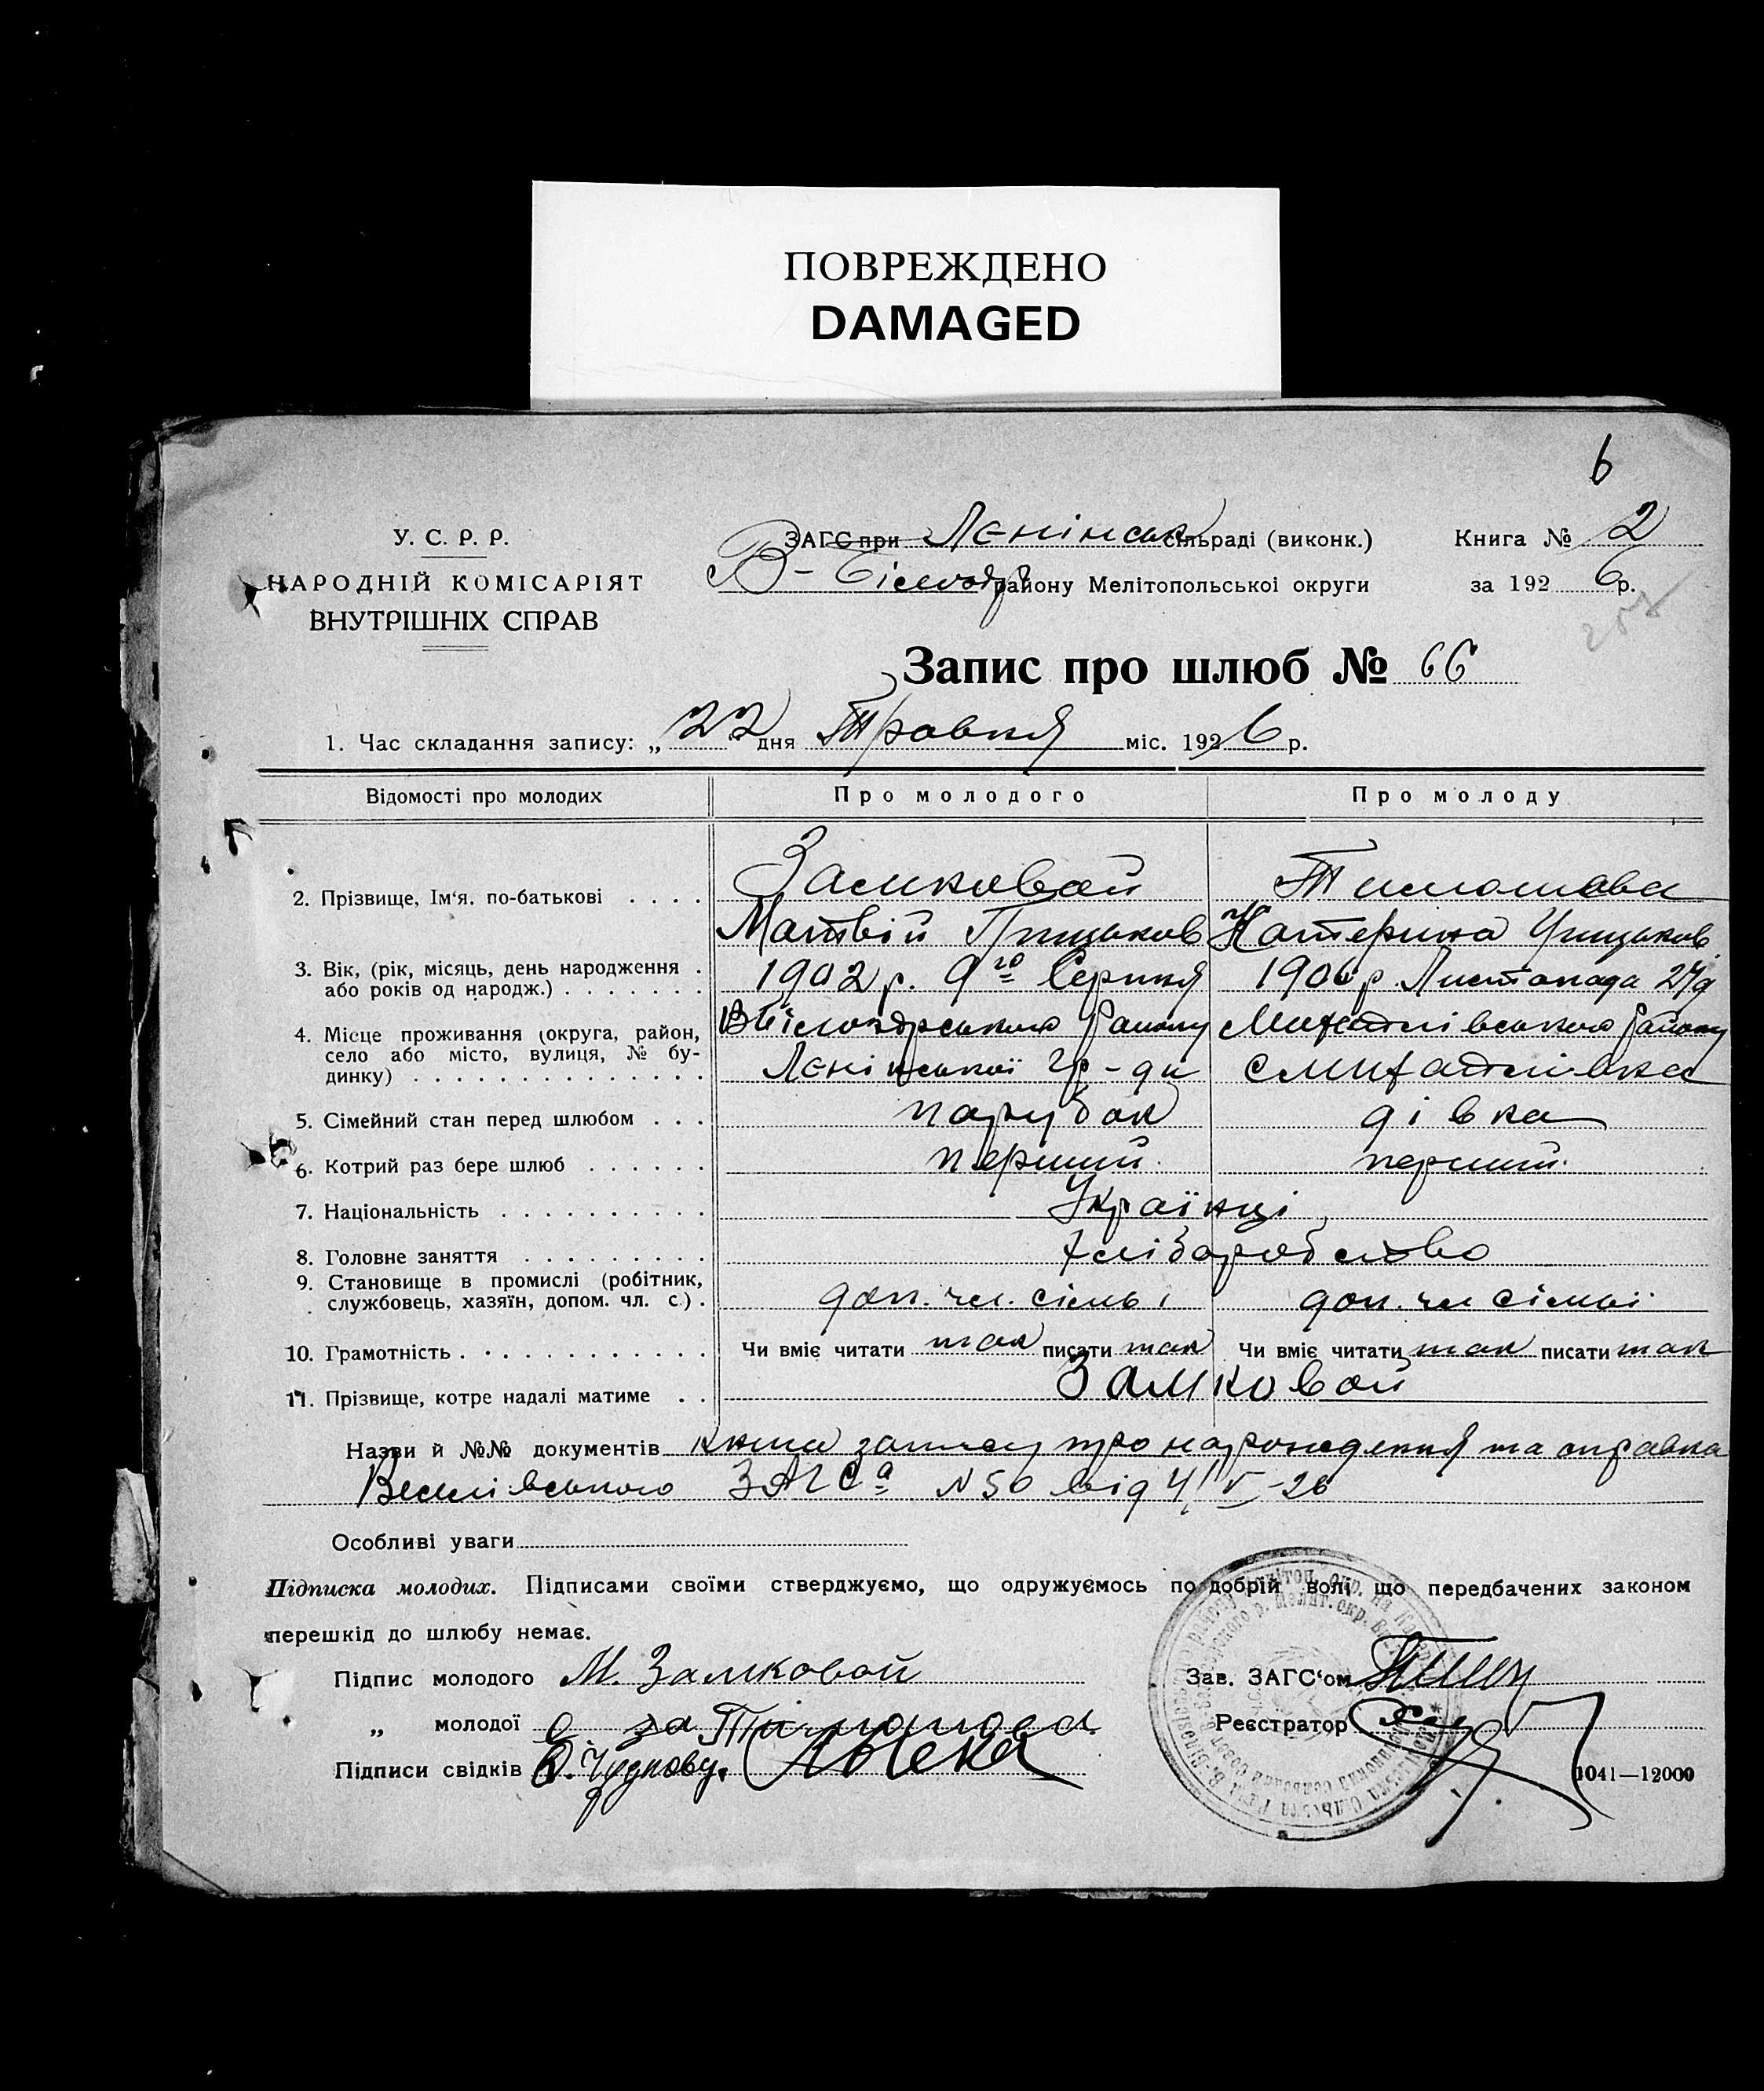 ПОВРЕЖДЕНО
DAMAGED
6
У. С. Р. Р.
НАРОДНІЙ КОМІСАРІЯТ
ВНУТРІШНІХ СПРАВ
ЗАГС при Ленінськ сільраді (виконк.)
В-Білозір району Мелітопольської округи
Книга № 2
за 1926 р.
Запис про шлюб № 66
1. Час складання запису: „22" дня Травня міс. 1926 р.
Відомості про молодих
Про молодого
Про молоду
2. Прізвище, Ім'я, по-батькові . . . .
Замковай
Матвій Грицьков
Тимошова
Катерина Грицьков
3. Вік, (рік, місяць, день народження .
або років од народж.) . . . . . . .
1902 р. 9го Серпня
1906 р. Листопада 24 д
4. Місце проживання (округа, район,
село або місто, вулиця, № бу-
динку) . . . . . . . . . . . . . .
ВБілозорського Району
Ленінської гр-ди
Михайлівського Району
с Михайлівка
5. Сімейний стан перед шлюбом . . .
парубок
дівка
6. Котрий раз бере шлюб . . . . . .
перший.
перший.
7. Національність . . . . . . . . . .
Українці
8. Головне заняття . . . . . . . . .
хліборобство
9. Становище в промислі (робітник,
службовець, хазяїн, допом. чл. с.) .
доп. чл. сімьі
доп. чл сімьї
10. Грамотність . . . . . . . . . . . .
Чи вміє читати так писати так
Чи вміє читати так писати так
11. Прізвище, котре надалі матиме . .
Замковой
Назви й №№ документів книга запису про народження та справка
Веселівського ЗАГСа N 50 від 4/V-26
Особливі уваги
Підписка молодих. Підписами своїми стверджуємо, що одружуємось по добрій волі що передбачених законом
перешкід до шлюбу немає.
Підпис молодого М. Замковой
„ молодої за
Підписи свідків
Зав. ЗАГС'ом
Реєстратор
1041—12000